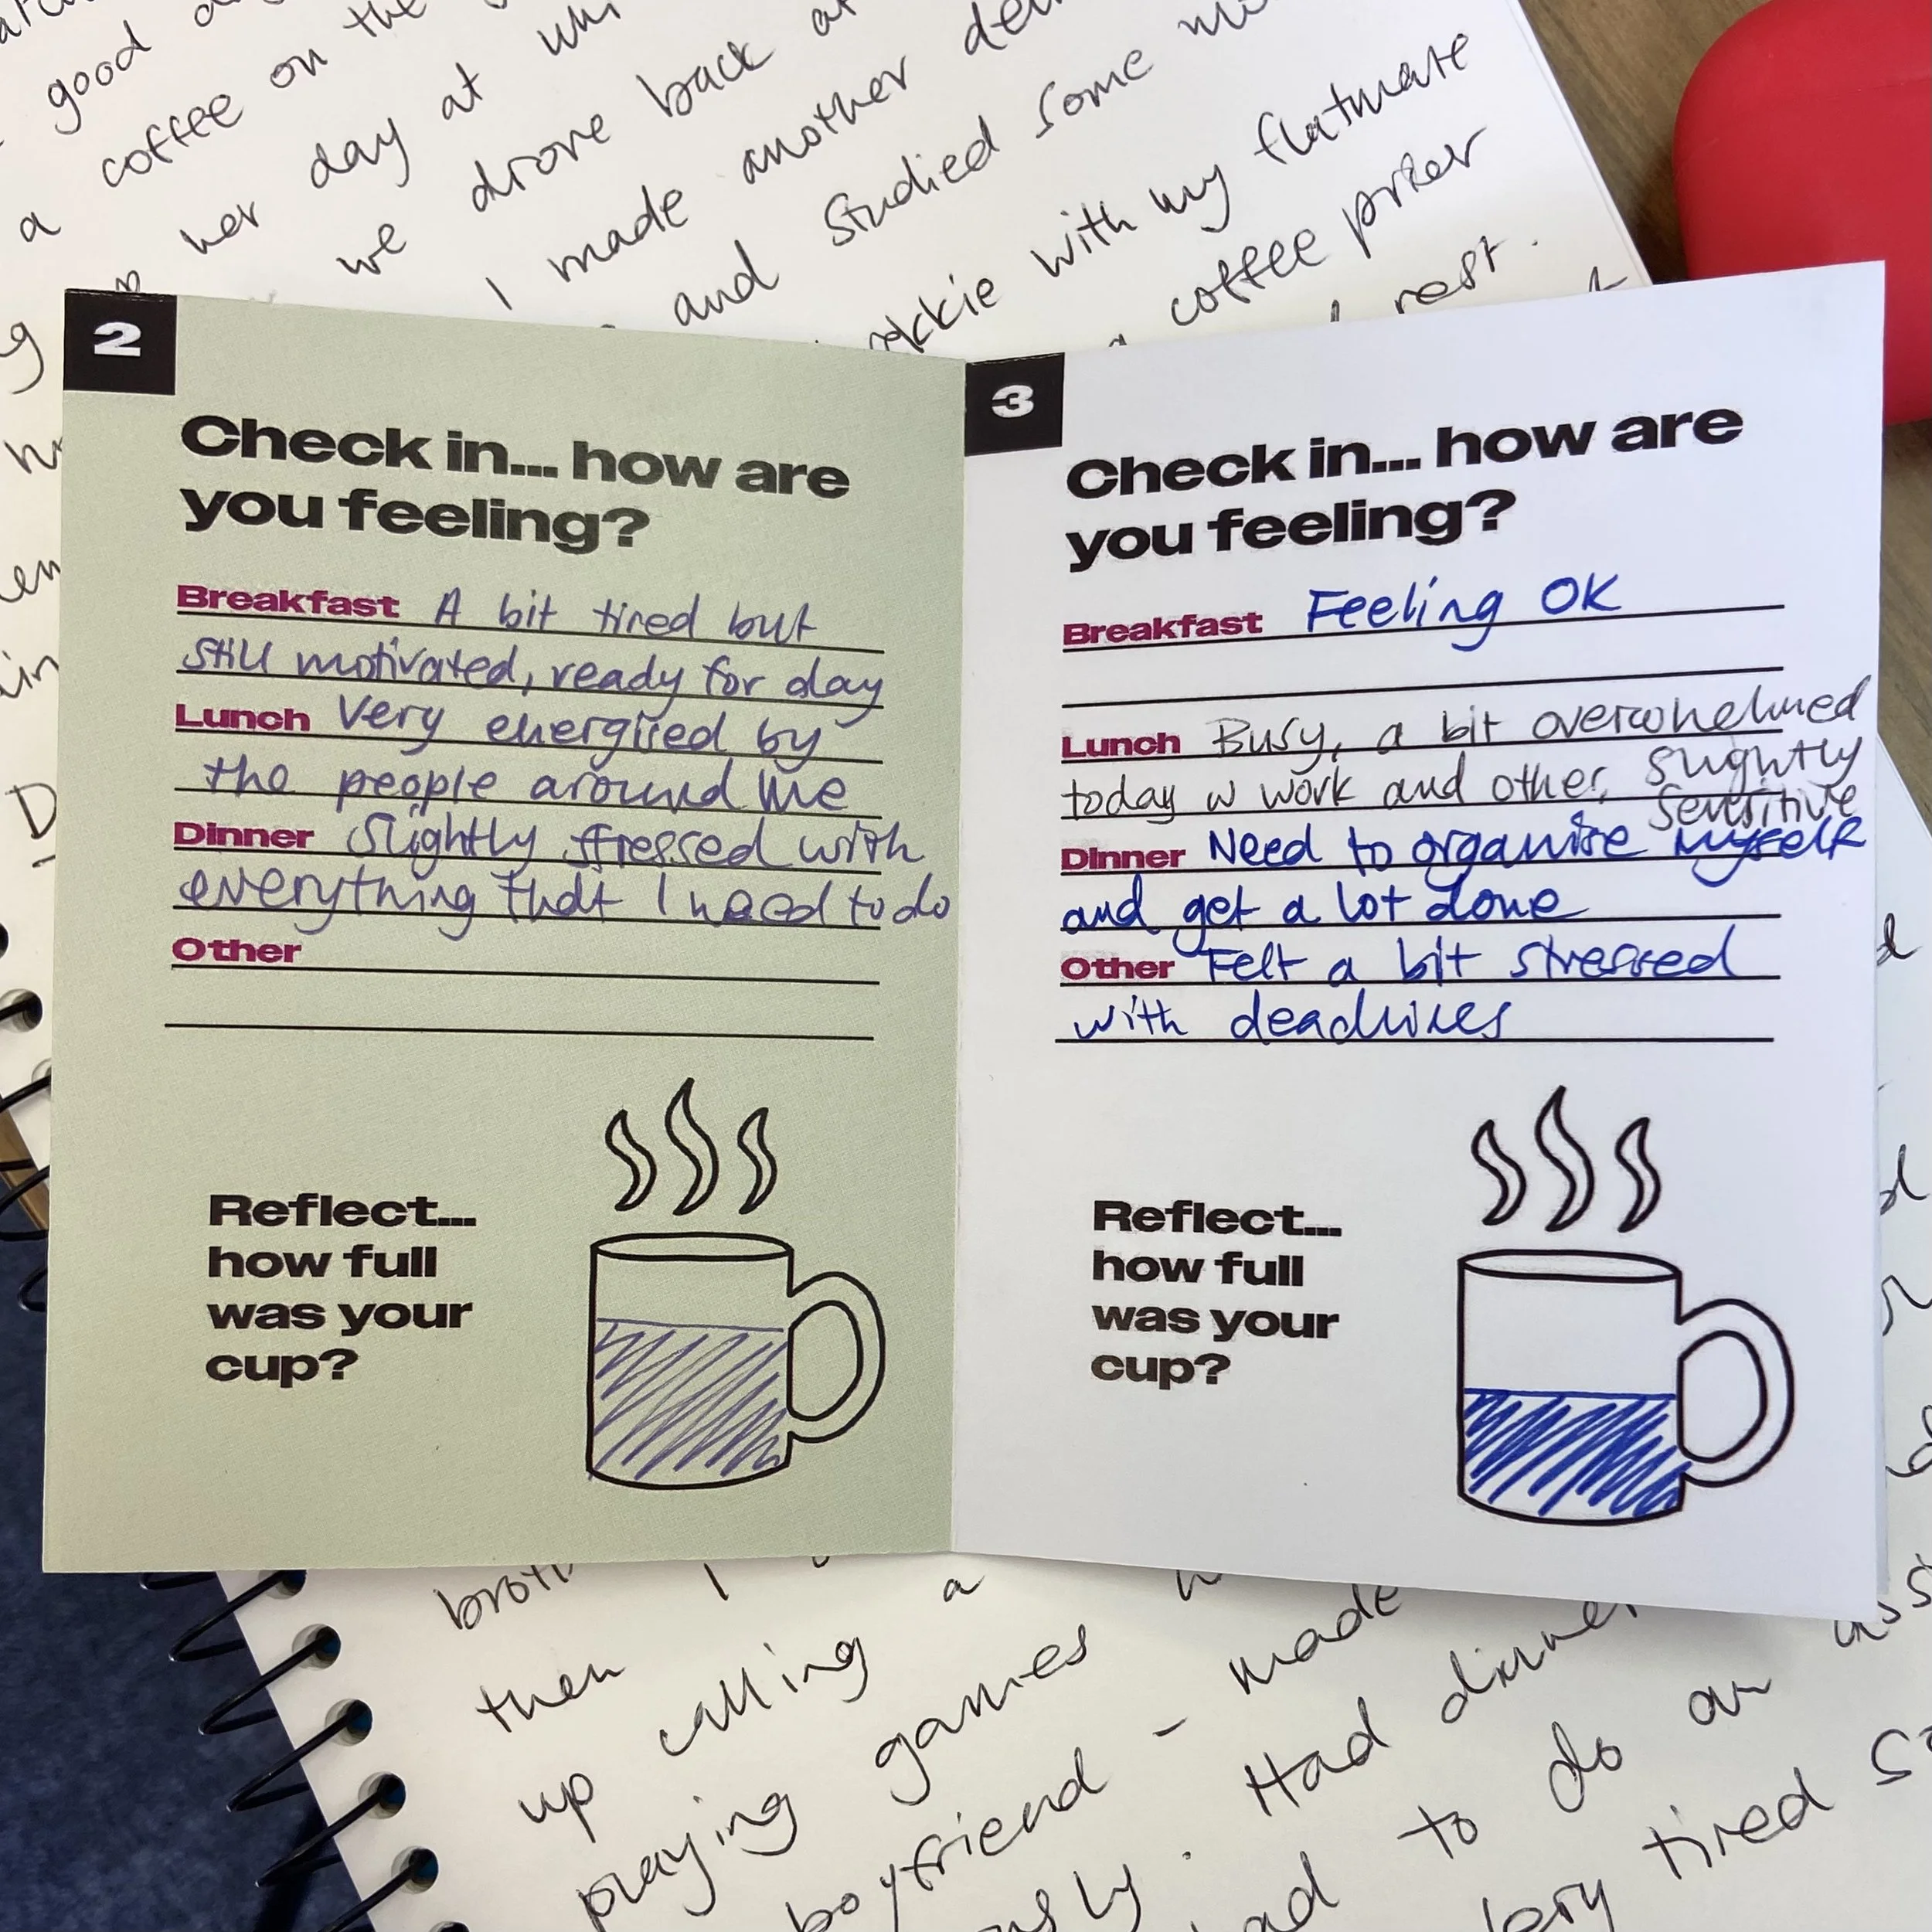 good
a coffee on the
her day at
we drove back
I made another
and studied some
with my flatmate
coffee prior
rest.
2
Check in... how are
you feeling?
Breakfast A bit tired but
still motivated, ready for day
Lunch Very energised by
the people around me
Dinner Slightly stressed with
everything that I need to do
Other
Reflect...
how full
was your
cup?
3
Check in... how are
you feeling?
Breakfast Feeling OK
Lunch Busy, a bit overwhelmed
today w work and other, slightly
sensitive
Dinner Need to organise myself
and get a lot done
Other Felt a bit stressed
with deadlines
Reflect...
how full
was your
cup?
then I a
up calling
playing games made
boyfriend - Had
to do an
tired